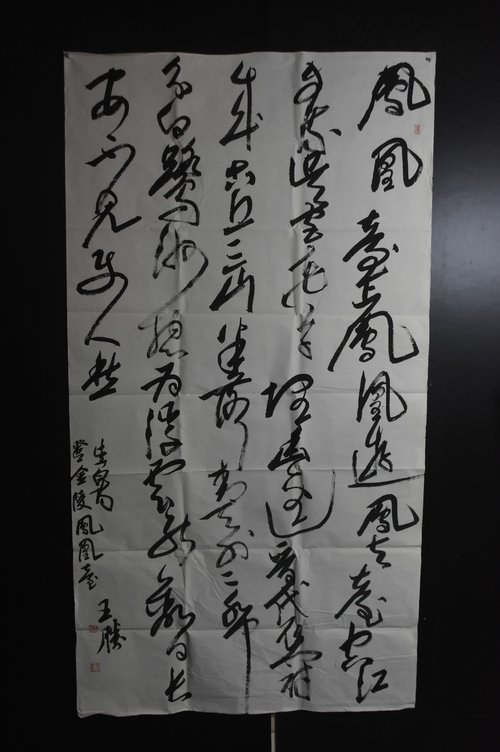 鳳凰臺上鳳凰遊鳳去臺空江
自流吳宮花草埋幽徑晉代衣冠
成古丘三山半落青天外二水中
分白鷺洲總為浮雲能蔽日長
安不見使人愁
李白詩
登金陵鳳凰臺
王勝